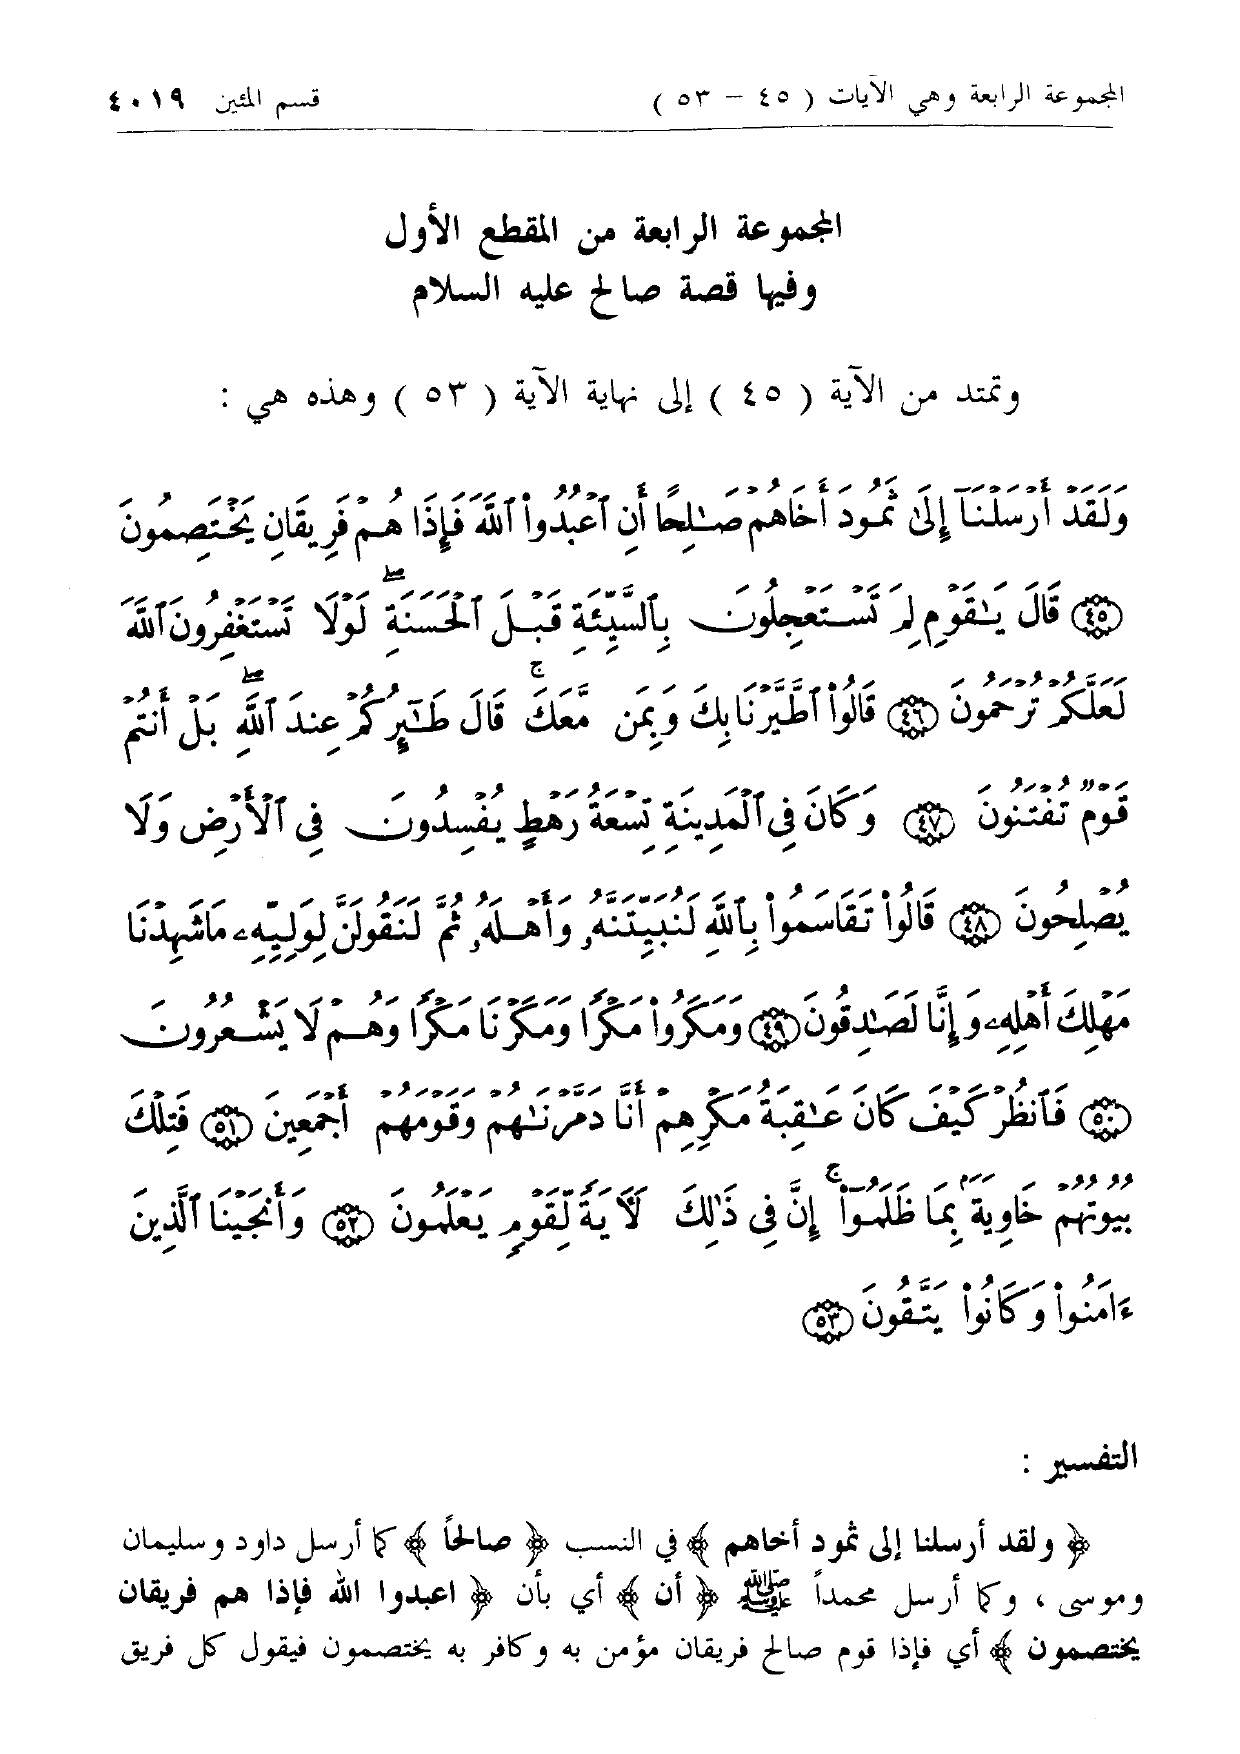 المجموعة الرابعة وهي الآيات ( ٤٥ – ٥٣ ) قسم المئين ٤٠١٩
المجموعة الرابعة من المقطع الأول
وفيها قصة صالح عليه السلام
وتمتد من الآية ( ٤٥ ) إلى نهاية الآية ( ٥٣ ) وهذه هي :
وَلَقَدْ أَرْسَلْنَآ إِلَىٰ ثَمُودَ أَخَاهُمْ صَـٰلِحًا أَنِ ٱعْبُدُوا۟ ٱللَّهَ فَإِذَا هُمْ فَرِيقَانِ يَخْتَصِمُونَ
﴿٤٥﴾ قَالَ يَـٰقَوْمِ لِمَ تَسْتَعْجِلُونَ بِٱلسَّيِّئَةِ قَبْلَ ٱلْحَسَنَةِ ۖ لَوْلَا تَسْتَغْفِرُونَ ٱللَّهَ
لَعَلَّكُمْ تُرْحَمُونَ ﴿٤٦﴾ قَالُوا۟ ٱطَّيَّرْنَا بِكَ وَبِمَن مَّعَكَ ۚ قَالَ طَـٰٓئِرُكُمْ عِندَ ٱللَّهِ ۖ بَلْ أَنتُمْ
قَوْمٌ تُفْتَنُونَ ﴿٤٧﴾ وَكَانَ فِى ٱلْمَدِينَةِ تِسْعَةُ رَهْطٍ يُفْسِدُونَ فِى ٱلْأَرْضِ وَلَا
يُصْلِحُونَ ﴿٤٨﴾ قَالُوا۟ تَقَاسَمُوا۟ بِٱللَّهِ لَنُبَيِّتَنَّهُۥ وَأَهْلَهُۥ ثُمَّ لَنَقُولَنَّ لِوَلِيِّهِۦ مَا شَهِدْنَا
مَهْلِكَ أَهْلِهِۦ وَإِنَّا لَصَـٰدِقُونَ ﴿٤٩﴾ وَمَكَرُوا۟ مَكْرًا وَمَكَرْنَا مَكْرًا وَهُمْ لَا يَشْعُرُونَ
﴿٥٠﴾ فَٱنظُرْ كَيْفَ كَانَ عَـٰقِبَةُ مَكْرِهِمْ أَنَّا دَمَّرْنَـٰهُمْ وَقَوْمَهُمْ أَجْمَعِينَ ﴿٥١﴾ فَتِلْكَ
بُيُوتُهُمْ خَاوِيَةًۢ بِمَا ظَلَمُوٓا۟ ۚ إِنَّ فِى ذَٰلِكَ لَـَٔايَةً لِّقَوْمٍ يَعْلَمُونَ ﴿٥٢﴾ وَأَنجَيْنَا ٱلَّذِينَ
ءَامَنُوا۟ وَكَانُوا۟ يَتَّقُونَ ﴿٥٣﴾
التفسير :
﴿ ولقد أرسلنا إلى ثمود أخاهم ﴾ في النسب ﴿ صالحاً ﴾ كما أرسل داود وسليمان
وموسى ، وكما أرسل محمداً ﷺ ﴿ أن ﴾ أي بأن ﴿ اعبدوا الله فإذا هم فريقان
يختصمون ﴾ أي فإذا قوم صالح فريقان مؤمن به وكافر به يختصمون فيقول كل فريق